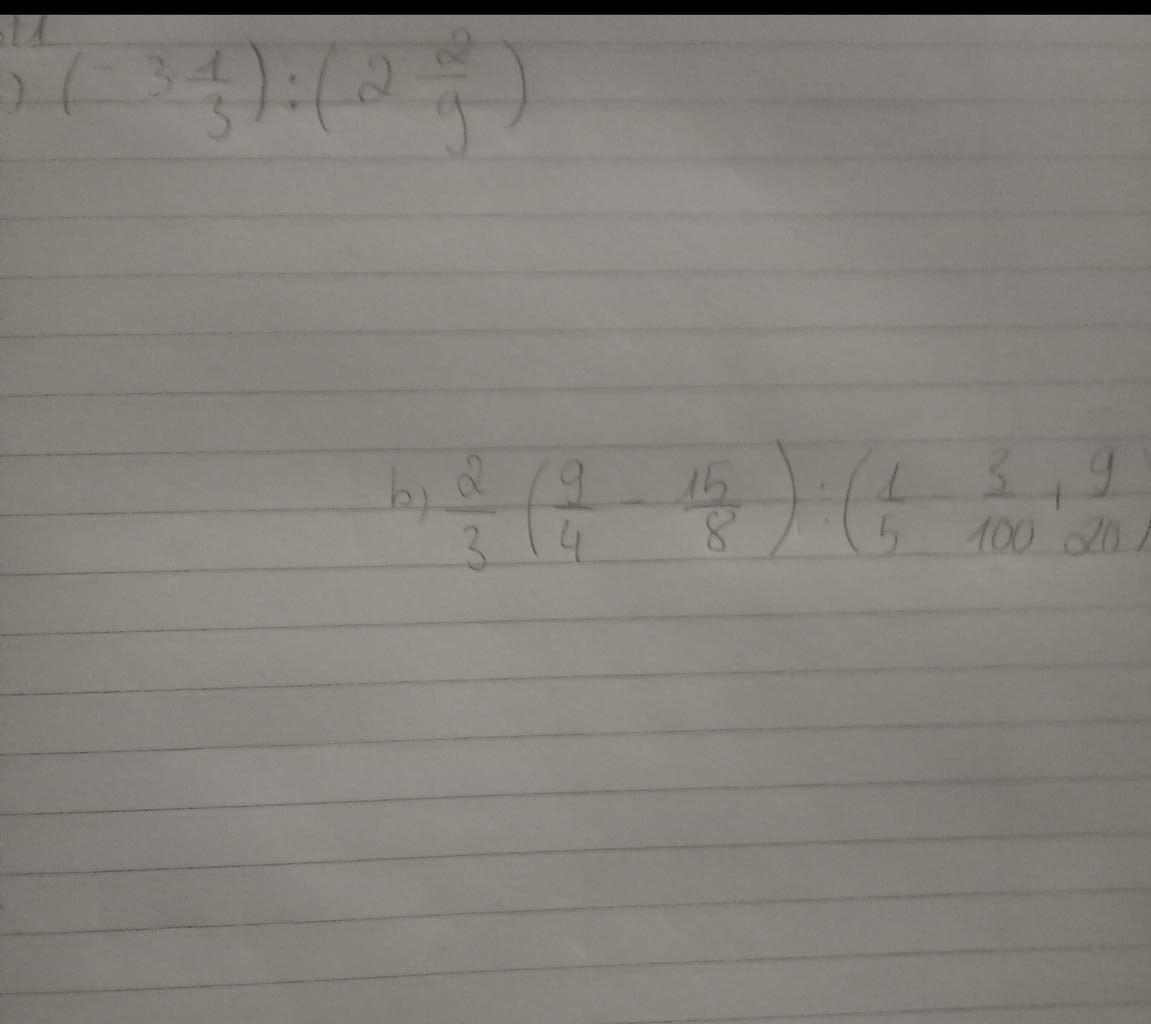 ) (- 3 1/3) : (2 2/9)
b) 2/3 (9/4 - 15/8) : (1/5 - 3/100 + 9/20)